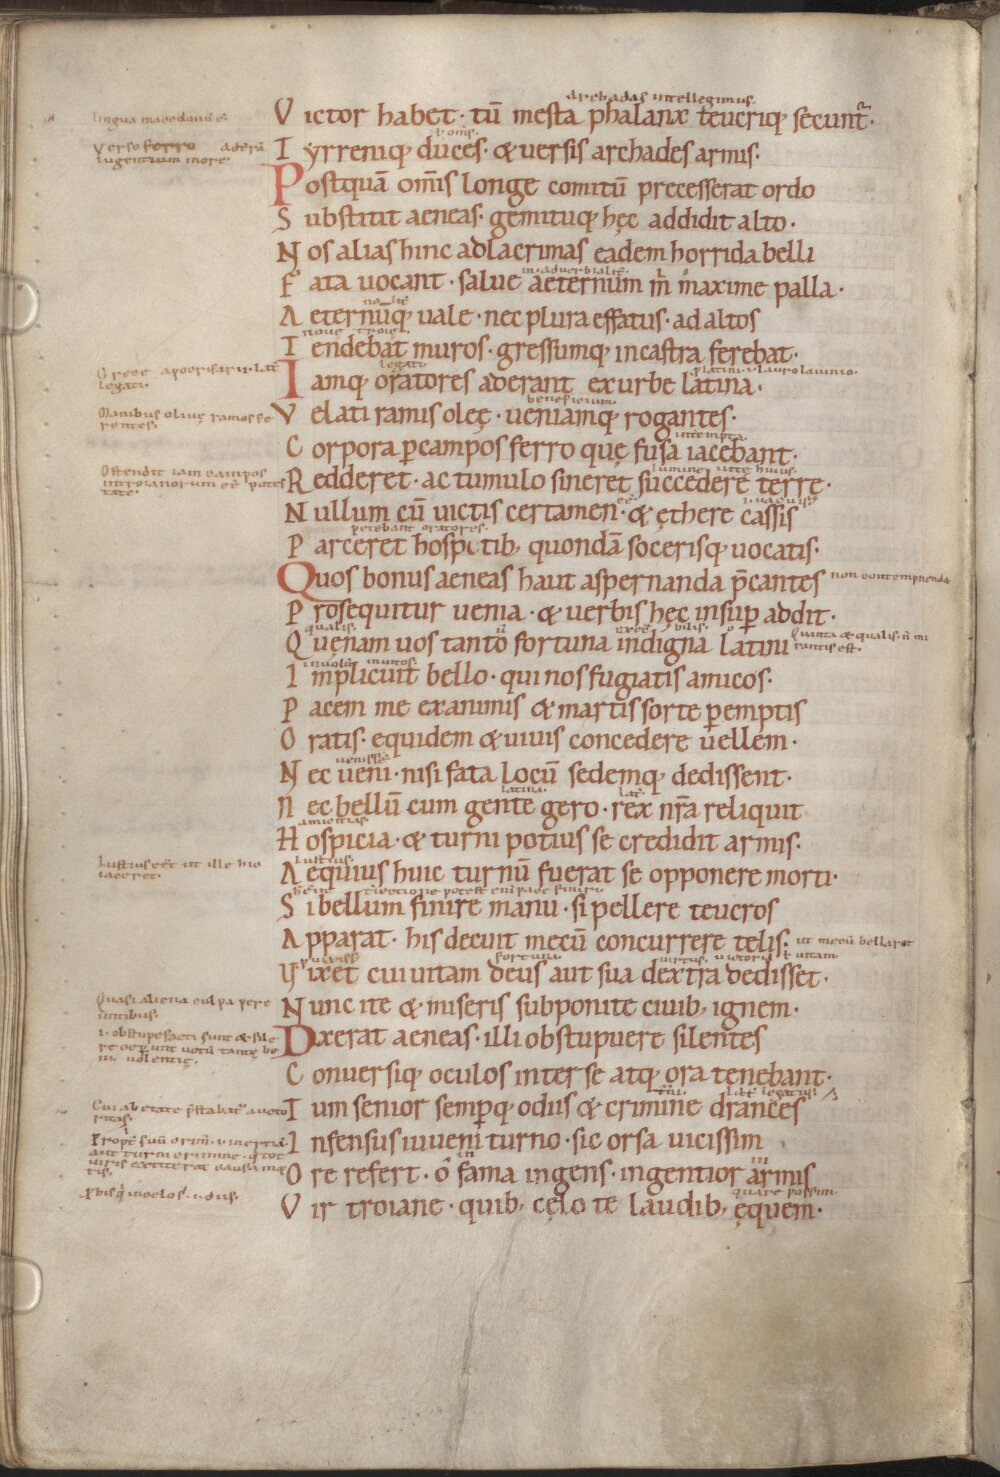 archadas intellegimus.
Victor habet· tū mesta phalanx teucriq; secunt᷑·
omīs.
Tyrreniq; duces· & uersis archades armis·
Postquā om̄is longe comitū precesserat ordo
Substitit aeneas· gemituq; hęc addidit alto·
Nos alias hinc ad lacrimas eadem horrida belli
Fata uocant· salue aeternum m̄ maxime palla·
Aeternūq; uale· nec plura effatus· ad altos
Tendebat muros· gressumq; in castra ferebat·
legati
Iamq; oratores aderant ex urbe latina·
Manibus oliuę ramos fe
rentes·
beneficium·
Velati ramis oleę· ueniamq; rogantes·
Corpora p̱ campos ferro quę fusa iacebant·
Ostendit iam campos
introianorum eē potes
tate·
Redderet· ac tumulo sineret succedere terre·
Nullum cū uictis certamen· & ęthere cassis
petebant oratores·
Parceret hospitib; quondā socerisq; uocatis·
Quos bonus aeneas haut aspernanda p̄cantes non contemnenda
Prosequitur uenia· & uerbis hęc insup̱ addit·
qualis·
Quęnam uos tanto fortuna indigna latini
Implicuit bello· qui nos fugiatis amicos·
Pacem me exanimis & martis sorte p̱emptis
Oratis· equidem & uiuis concedere uellem·
uenissē
Nec ueni· nisi fata locū sedemq; dedissent·
latina·
Nec bellū cum gente gero· rex nr̄a reliquit
amicitias
Hospicia· & turni potius se credidit armis·
Iustius eēt ut ille hic
iaceret·
iustius·
Aequius huic turnū fuerat se opponere morti·
Si bellum finire manu· si pellere teucros
Apparat· his decuit mecū concurrere telis· ut mecū bellaret
fortuna· uirtus·
Vixet cui uitam deus aut sua dextra dedisset·
Quasi aliena culpa pere
untibus·
Nunc ite & miseris subponite ciuib; ignem·
Dixerat aeneas· illi obstupuere silentes
Conuersiq; oculos inter se atq; ora tenebant·
Tum senior semp̱q; odiis & crimine drances
Infensus iuueni turno· sic orsa uicissim
in
Ore refert· ō fama ingens· ingentior armis
quare possim·
Vir troiane· quib; cęlo te laudib; ęquem·